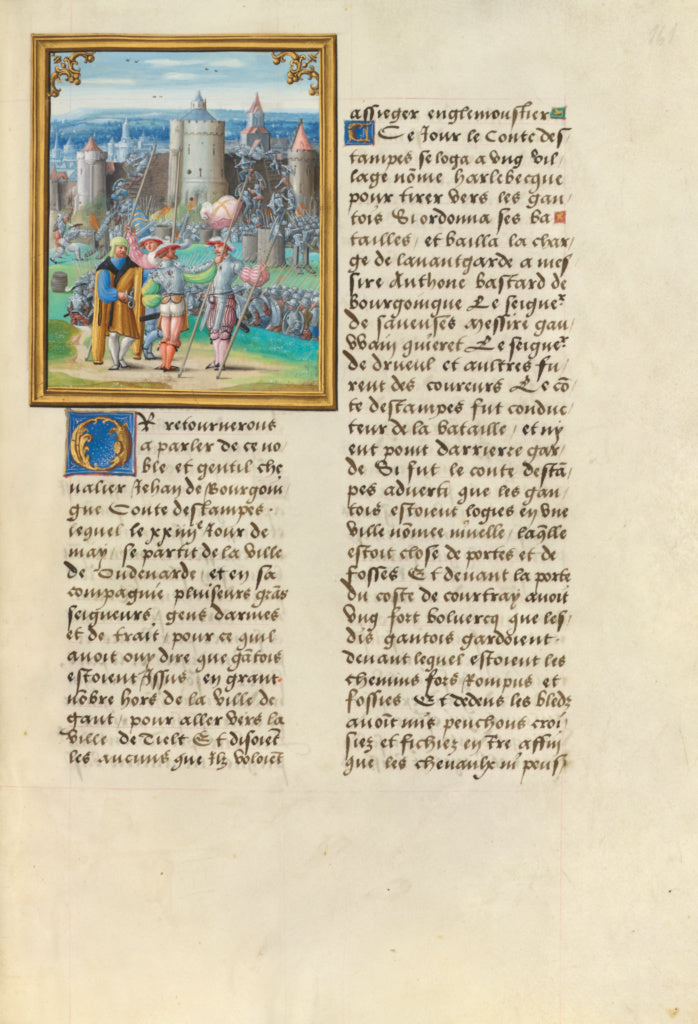 161
Or retournerons
a parler de ce no/
ble et gentil che/
ualier Jehan de Bourgoin/
gne Conte destampes .
lequel le xxiiij.e Jour de
may / se partit de la ville
de Audenarde / et en sa
compagnie pluiseurs grãs
seigneurs / gens darmes
et de trait / pour ce quil
auoit ouy dire que gãtois
estoient Jssus / en grant
nõbre hors de la ville de
gant / pour aller vers la
ville de Tielt Et disoiẽt
les aucuns que Jlz voloiẽt
assieger englemoustier
Ce Jour le Conte des
tampes se loga a vng vil/
lage nõme harlebecque
pour tirer vers les gan/
tois Si ordonna ses ba
tailles / et bailla la char/
ge de lauantgarde a mes/
sire Anthone bastard de
Bourgoingne Le seigner
de saueuses Messire gau/
wain quieret Le seigner
de drueul et aultres fu/
rent des coureurs Le cõ
te destampes fut conduc/
teur de la bataille / et ny
eut point darriere gar/
de Si fut le conte destã/
pes aduerti que les gan/
tois estoient logies en vne
ville nõmee niuelle / laq̃lle
estoit close de portes et de
fosses Et deuant la porte
du coste de courtray auoit
vng fort boluercq que les/
dis gantois gardoient .
deuant lequel estoient les
chemins fors Rompus et
fossies Et dedens les bledz
auoiẽt mis penchons croi/
siez et fichiez en Tre affin
que les cheuaulx ni peus/